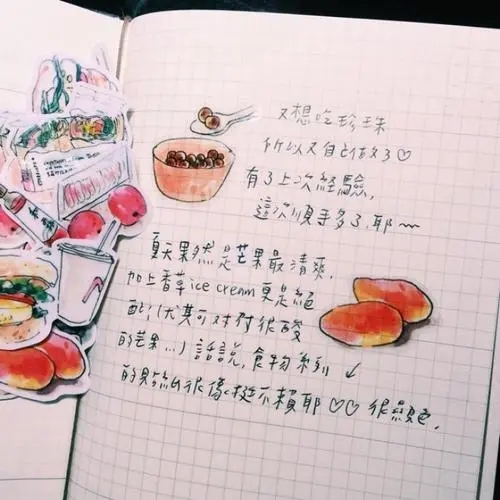 又想吃珍珠
所以又自己做了♡
有了上次經驗,
這次順手多了,耶~
夏天果然是芒果最清爽,
加上香草 ice cream 更是絕
配!(尤其可對付很酸
的芒果...)話說,食物系列↙
的貼紙很像挺不賴耶♡♡很顯色.